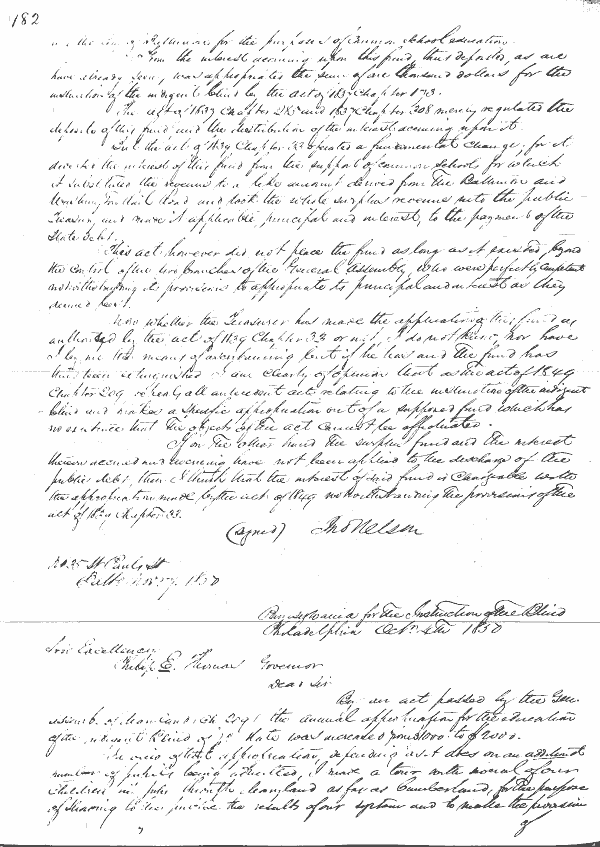 182
of Baltimore for the purposes of Common School education.
From the interest accruing upon this fund, thus deposited, as we
have already seen, was appropriated the sum of one thousand dollars for the
instruction of the indigent blind by the act of 1837 Chapter 173.
The act of 1839 Chapter and 1837 Chapter 308 merely regulated the
deposite of this fund and the distribution of the interest accruing upon it.
But the act of 1839 Chapter 33 operated a fundamental change, for it
diverted the interest of this fund from the support of common schools, for which
it substituted the revenue to a like amount derived from The Baltimore and
Washington Rail Road and took the whole surplus revenue into the public
Treasury and made it applicable, principal and interest, to the payment of the
State debt.
This act however did not place the fund as long as it existed, beyond
the control of the two branches of the General Assembly, who were perfectly competent
notwithstanding its provisions to appropriate its principal and interest as they
deemed best.
Now whether the Treasurer has made the application of this fund as
authorised by the act of 1839 Chapter 33 or not, I do not know, nor have
I by me the means of ascertaining but if he has and the fund has
thus been extinguished I am clearly of opinion that as the act of 1849
Chapter 209 repeals all antecedent acts relating to the instruction of the indigent
blind and makes a specific appropriation out of a supposed fund which has
no existence that the objects of the act cannot be effectuated.
If on the other hand the surplus fund and the interest
thereon accrued and accruing have not been applied to the discharge of the
public debt, then I think that the interest of said fund is chargeable with
the appropriation made by the act of 1849 notwithstanding the provisions of the
act of 1839 Chapter 33.
(signed) Jno Nelson
No. 25 St Pauls St
Balto Nov 1850
Pennsylvania for the Instruction of the Blind
Philadelphia Octr 4th 1850
Excellency
Philip E. Thomas Governor
Dear Sir
By an act passed by the Gen
Assemb. of Maryland (Ch. 209) the annual appropriation for the education
of the indigent Blind of yr State was increased from $1000 to $2000.
In view of that appropriation, depending as it does on an additional
number of pupils being admitted, I made a tour with several of our
children in July through Maryland as far as Cumberland, for the purpose
of shewing to the people the results of our system and to make the provision
of